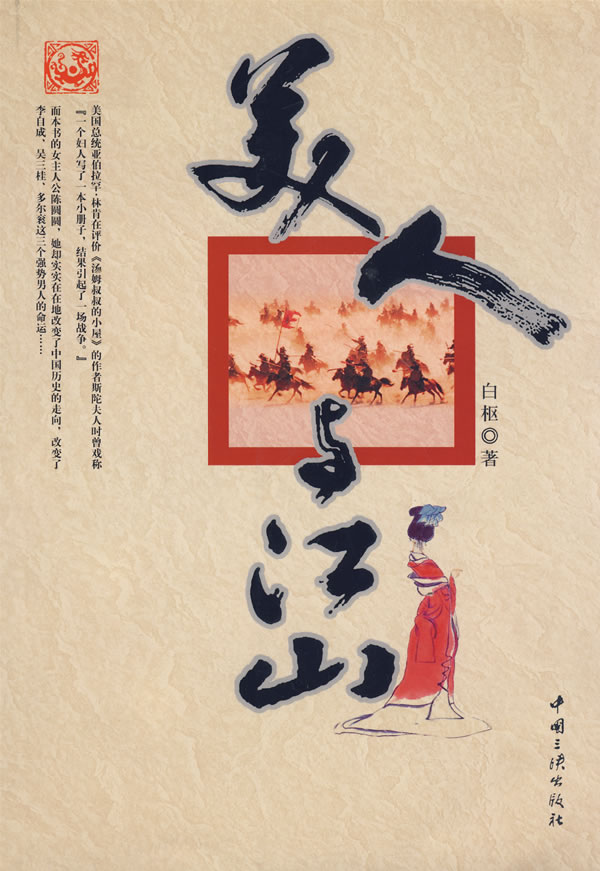 美人与江山
白枢◎著
美国总统亚伯拉罕·林肯在评价《汤姆叔叔的小屋》的作者斯陀夫人时曾戏称
『一个妇人写了一本小册子，结果引起了一场战争。』
而本书的女主人公陈圆圆，她却实实在在地改变了中国历史的走向，改变了
李自成，吴三桂，多尔衮这三个强势男人的命运……
中国三峡出版社